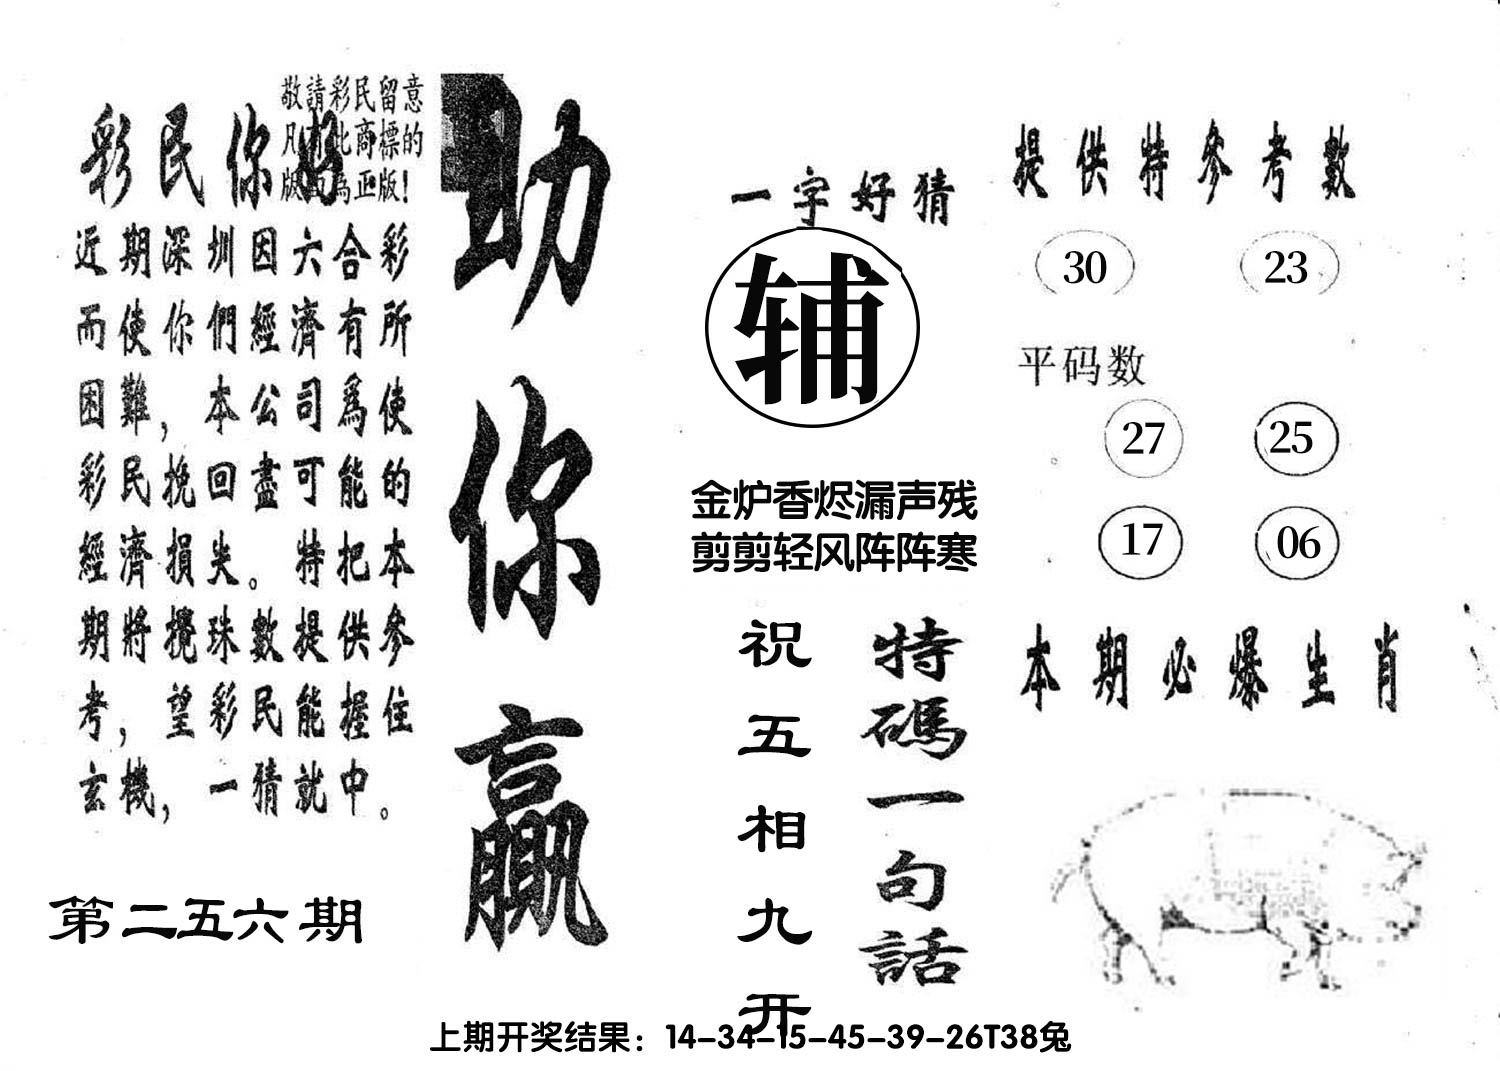 敬請彩民留意
凡有此商標的
版面為正版！
彩民你好
近期深圳因六合彩
而使你們經濟有所
困難，本公司爲使
彩民挽回盡可能的
經濟損失。特把本
期將攪珠數提供參
考，望彩民能握住
玄機，一猜就中。
第二五六期
助你贏
一字好猜
辅
金炉香烬漏声残
剪剪轻风阵阵寒
特碼一句話
祝五相九开
提供特參考數
30 23
平码数
27 25
17 06
本期必爆生肖
上期开奖结果：14-34-15-45-39-26T38兔